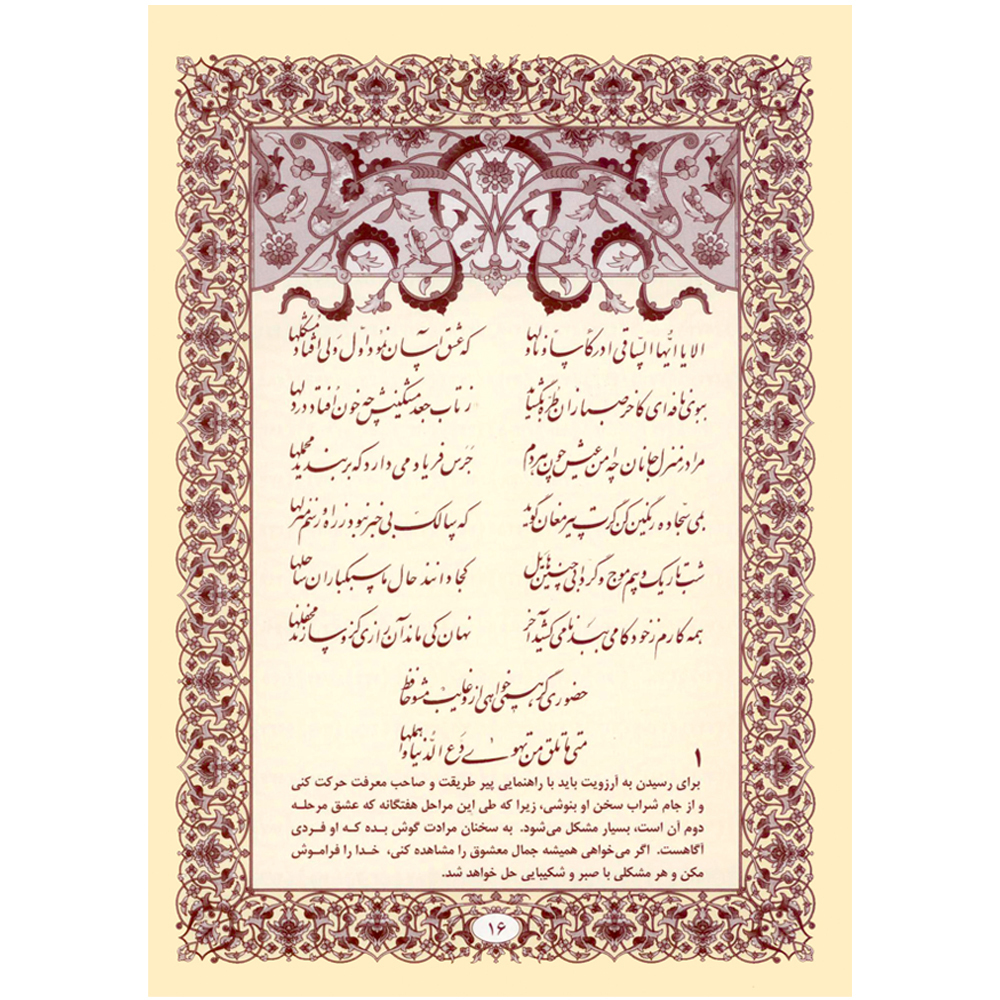 الا یا ایّها السّاقی ادر کأساً و ناولها که عشق آسان نمود اوّل ولی افتاد مشکلها
ببوی نافه‌ای کاخر صبا زان طرّه بگشاید ز تاب جعد مشکینش چه خون اُفتاد در دلها
مرا در منزل جانان چه امن عیش چون هر دم جَرَس فریاد می‌دارد که بر بندید محملها
بمی سجّاده رنگین کن گرت پیر مغان گوید که سالک بی خبر نبود ز راه و رسم منزلها
شب تاریک و بیم موج و گردابی چنین هایل کجا دانند حال ما سبکباران ساحلها
همه کارم ز خود کامی ببدنامی کشید آخر نهان کی ماند آن رازی کزو سازند محفلها
حضوری گر همی خواهی ازو غایب مشو حافظ
متی ما تلق من تهوی دَعِ الدُّنیا و اهملها
۱
برای رسیدن به آرزویت باید با راهنمایی پیر طریقت و صاحب معرفت حرکت کنی
و از جام شراب سخن او بنوشی، زیرا که طی این مراحل هفتگانه که عشق مرحله
دوم آن است، بسیار مشکل می‌شود. به سخنان مرادت گوش بده که او فردی
آگاهست. اگر می‌خواهی همیشه جمال معشوق را مشاهده کنی، خدا را فراموش
مکن و هر مشکلی با صبر و شکیبایی حل خواهد شد.
۱۶